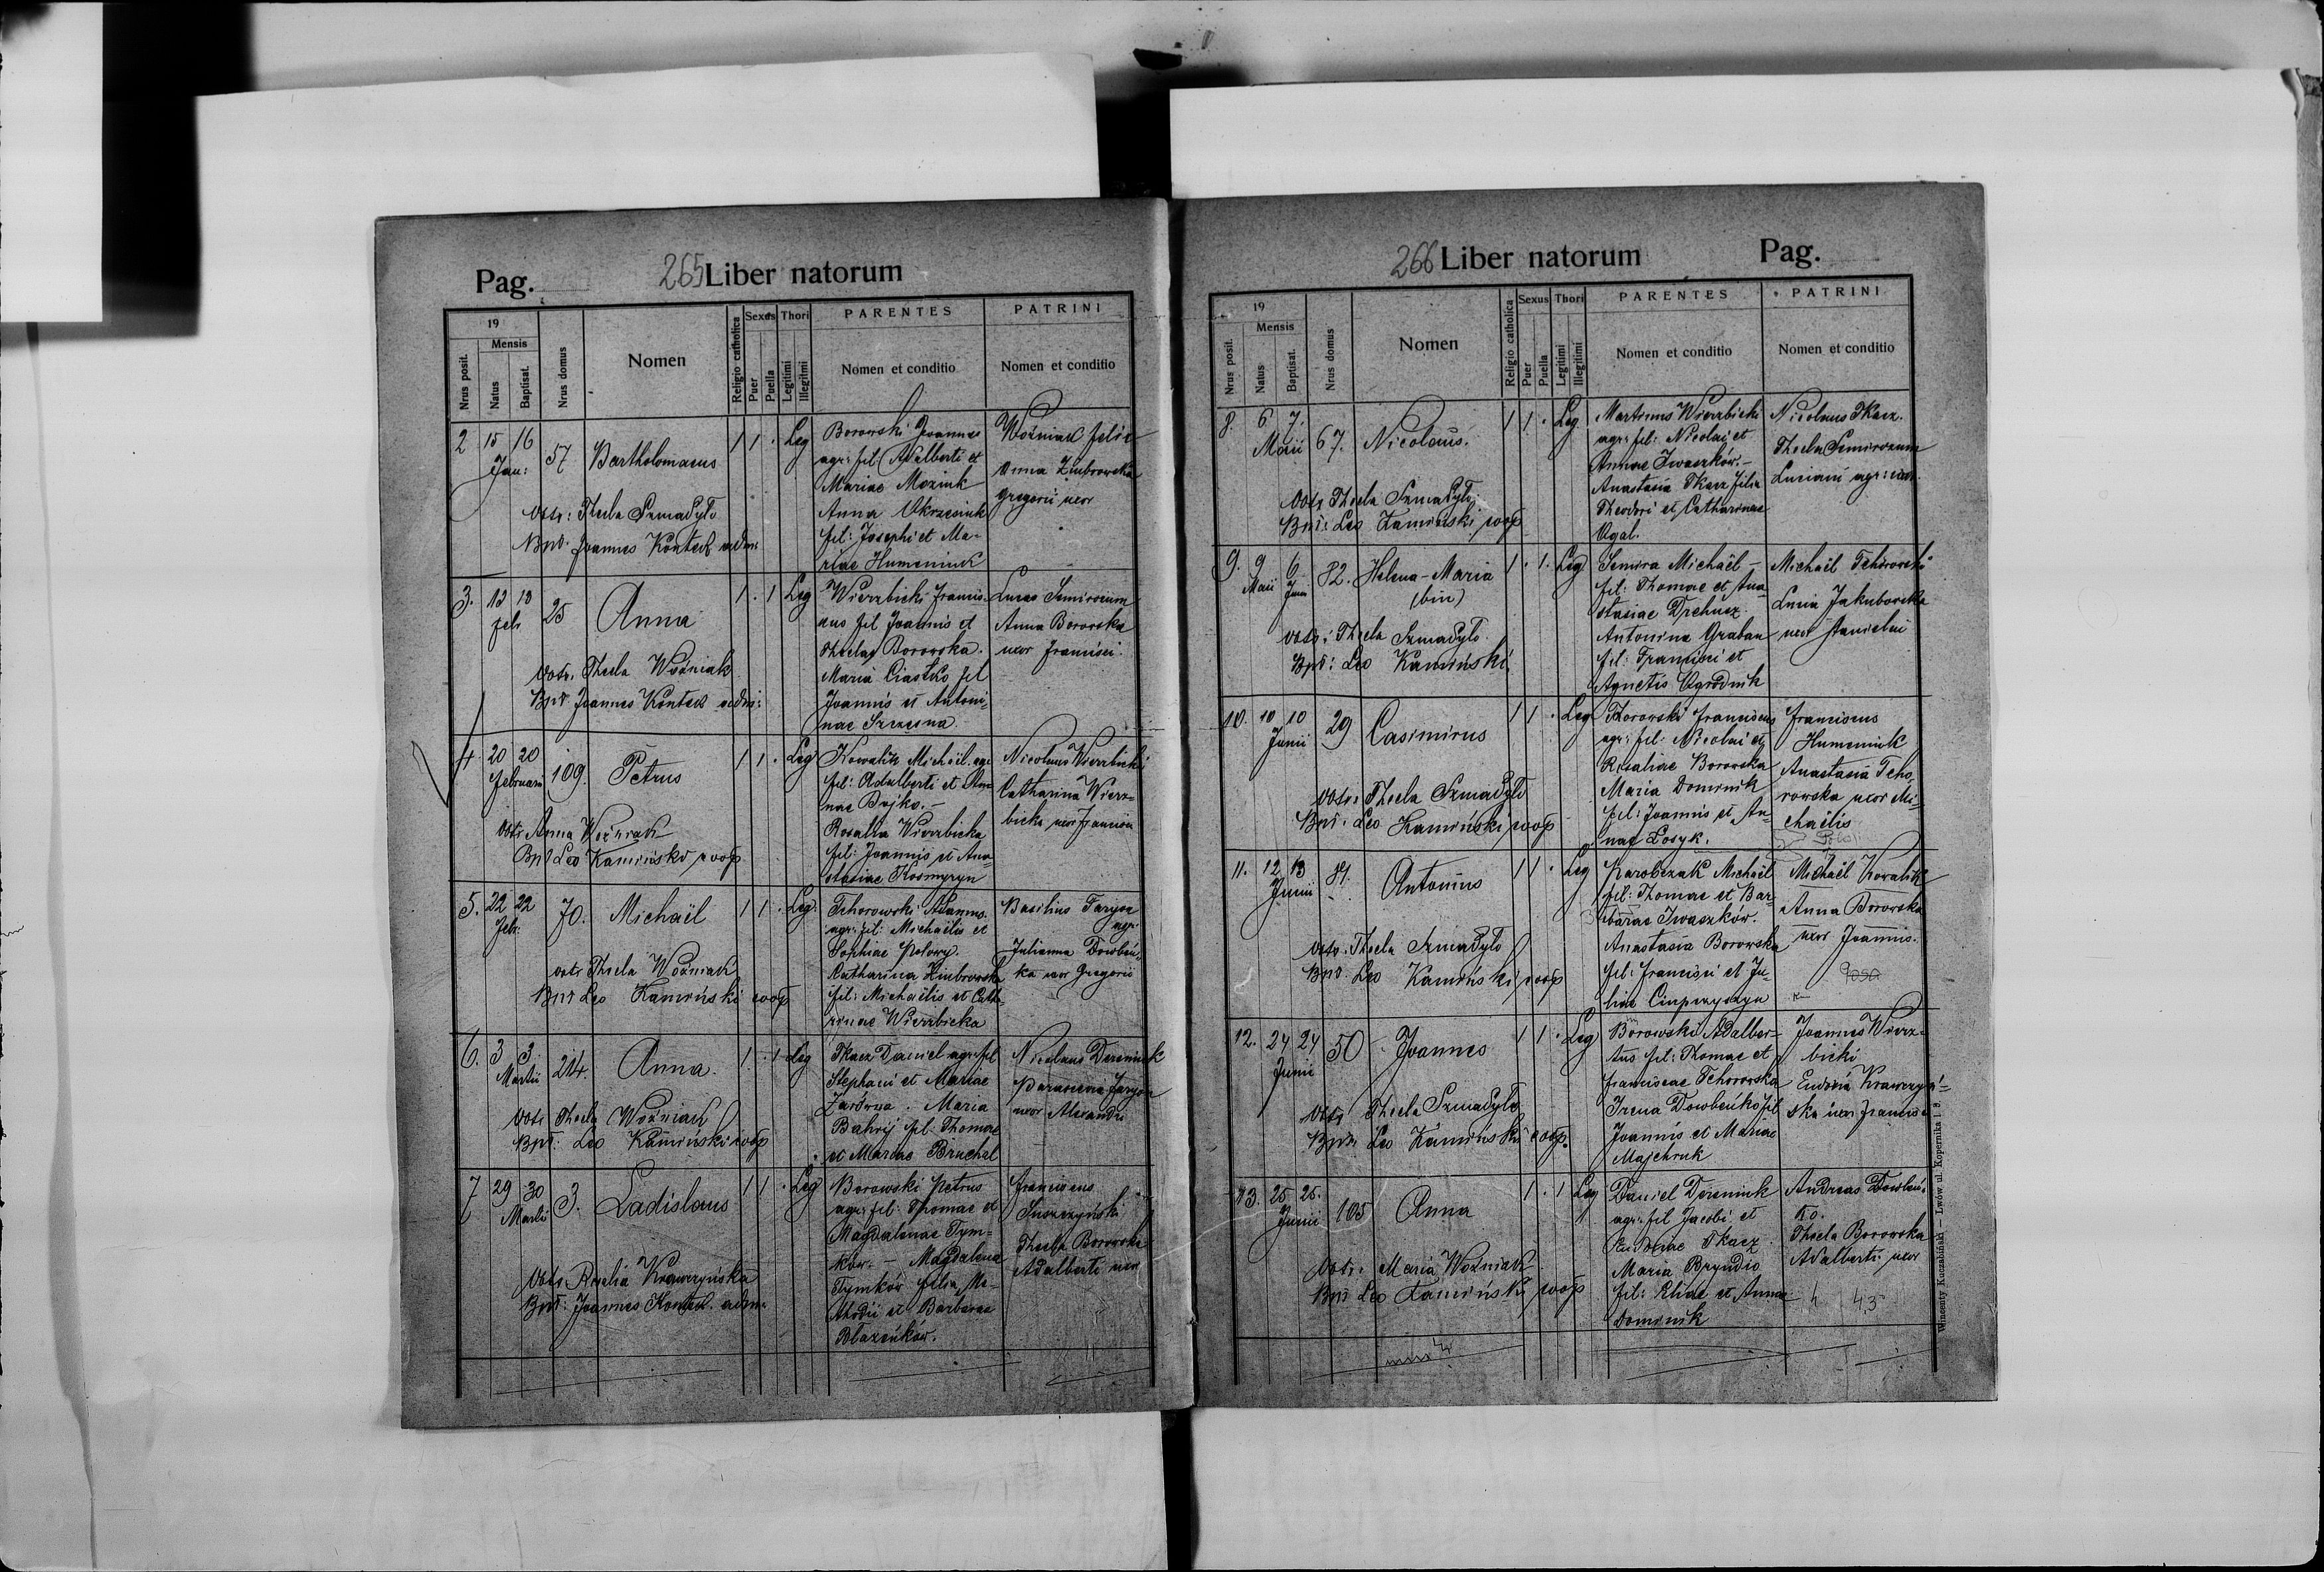 Pag.
265 Liber natorum
19
Mensis
Nrus posit.
Natus
Baptisat.
Nrus domus
Nomen
Religio catholica
Sexus
Puer
Puella
Thori
Legitimi
Illegitmi
PARENTES
Nomen et conditio
PATRINI
Nomen et conditio
2 15 16 57 Bartholomaeus 1 1 . Leg
Jan:
Obstr: Thecla Szmadyło
Bpt. Joannes Kontek adm:
Borowski Joannes
agr: fil: Adalberti et
Mariae Moziuk
Anna Okrzesiuk
fil: Josephi et Ma-
riae Humeniuk
Woźniak Felix
Anna Zimbrowska
Gregorii uxor
3. 13 13 25 Anna 1 . 1 Leg
Feb
Obstr. Thecla Woźniak
Bpt Joannes Kontek adm:
Wierzbicki Francis-
cus fil Joannis et
Theclae Borowska.
Maria Ciastko fil
Joannis et Antoni-
nae Szczesna
Lucas Semirozum
Anna Borowska
uxor Francisci.
4 20 20 109. Petrus 1 1 . Leg
Februarii
Obstr Anna Woźniak
Bpt Leo Kamiński coop
Kowalik Michaël agr
fil: Adalberti et An-
nae Bojko. -
Rosalia Wierzbicka
fil: Joannis et Ana-
stasiae Kosmyryn
Nicolaus Wierzbicki
Catharina Wierz-
bicki uxor Francisci
5. 22 22 70. Michaël 1 1 . Leg.
Feb:
Obstr Thecla Woźniak
Bpt Leo Kamiński coop
Tchorowski Adamus.
agr: fil: Michaëlis et
Sophiae Połowy.
Catharina Zimbrowska
fil: Michaëlis et Catha-
rinae Wierzbicka
Basilius Faryon
agr.
Julianna Dowbeń-
ka uxor Gregorii
6. 3 3 214. Anna. 1. . 1 Leg
Martii
Obstr Thecla Woźniak
Bpt: Leo Kamiński coop
Tkacz Daniel agr: fil
Stephani et Mariae
Maria
Bahrij fil Thomae
et Mariae Bruchal
Nicolaus Dereniuk
Parascewa Faryon
uxor Alexandri
7 29 30 3. Ladislaus 1 1 . Leg
Martii
Obstr. Rosalia Krawczyńska
Bpt: Joannes Kontek. adm.
Borowski Petrus
agr: fil: Thomae et
Magdalenae Tym-
ków. - Magdalena
Tymków filia Me-
thodii et Barbarae
Błażeńków.
Franciscus
Suszczyński
Thecla Borowska
Adalberti uxor
266 Liber natorum
Pag.
19
Mensis
Nrus posit.
Natus
Baptisat.
Nrus domus
Nomen
Religio catholica
Sexus
Puer
Puella
Thori
Legitimi
Illegitimi
PARENTES
Nomen et conditio
PATRINI
Nomen et conditio
8. 6 7. 67. Nicolaus. 1 1 . Leg
Maii
Obstr Thecla Szmadyło.
Bpt: Leo Kamiński coop
Martinus Wierzbicki
agr: fil: Nicolai et
Annae Iwaszków. -
Anastasia Tkacz filia
Theodori et Catharinae
Ogal.
Nicolaus Tkacz.
Thecla Semirozum
Luciani agr: uxor.
9. 9 6 82. Helena - Maria 1 . 1. Leg
Maii Junii
(bin)
Obstr: Thecla Szmadyło.
Bpt: Leo Kamiński.
Semira Michaël -
fil: Thomae et Ana-
stasiae Drehusz.
Antonina Graban
fil: Francisci et
Agnetis Ogrodnik
Michaël Tchórowski
Lucia Jakubowska
uxor Stanislai
10. 10 10 29 Casimirus 1 1 . Leg
Junii
Obstr: Thecla Szmadyło
Bpt. Leo Kamiński coop
Tchorowski Franciscus
agr: fil: Nicolai et
Rosaliae Borowska
Maria Dominik
fil: Joannis et An-
nae Łosyk.
Franciscus
Humeniuk
Anastasia Tcho-
rowska uxor Mi-
chaëlis
11. 12 13 81. Antonius 1 1 . Leg
Junii
Obstr: Thecla Szmadyło
Bpt. Leo Kamiński coop
Parobczak Michaël
fil: Thomae et Bar-
barae Iwaszków.
Anastasia Borowska
fil: Francisci et Ju-
liae
Michaël Kowalik
Anna Borowska
uxor Joannis.
12. 24 24 50 Joannes 1 1 . Leg
Junii
Obstr Thecla Szmadyło
Bpt. Leo Kamiński coop.
Borowski Adalber-
tus fil: Thomae et
Franciscae Tchorowska
Irena Dowbeńko fil
Joannis et Mariae
Majchruk
Joannes Wierz-
bicki
Eudoxia Krawczyń-
ska uxor Francisci
13. 25 25. 105 Anna 1 . 1 Leg
Junii
Obstr: Maria Woźniak
Bpt Leo Kamiński coop
Daniel Dereniuk
agr: fil Jacobi et
Eudociae Tkacz.
Maria Bryndio
fil: Eliae et Annae
Dominik
Andreas Dowbeń-
ko.
Thecla Borowska
Adalberti uxor
4 43
Wincenty Kuczabiński — Lwów ul. Kopernika l. 8.